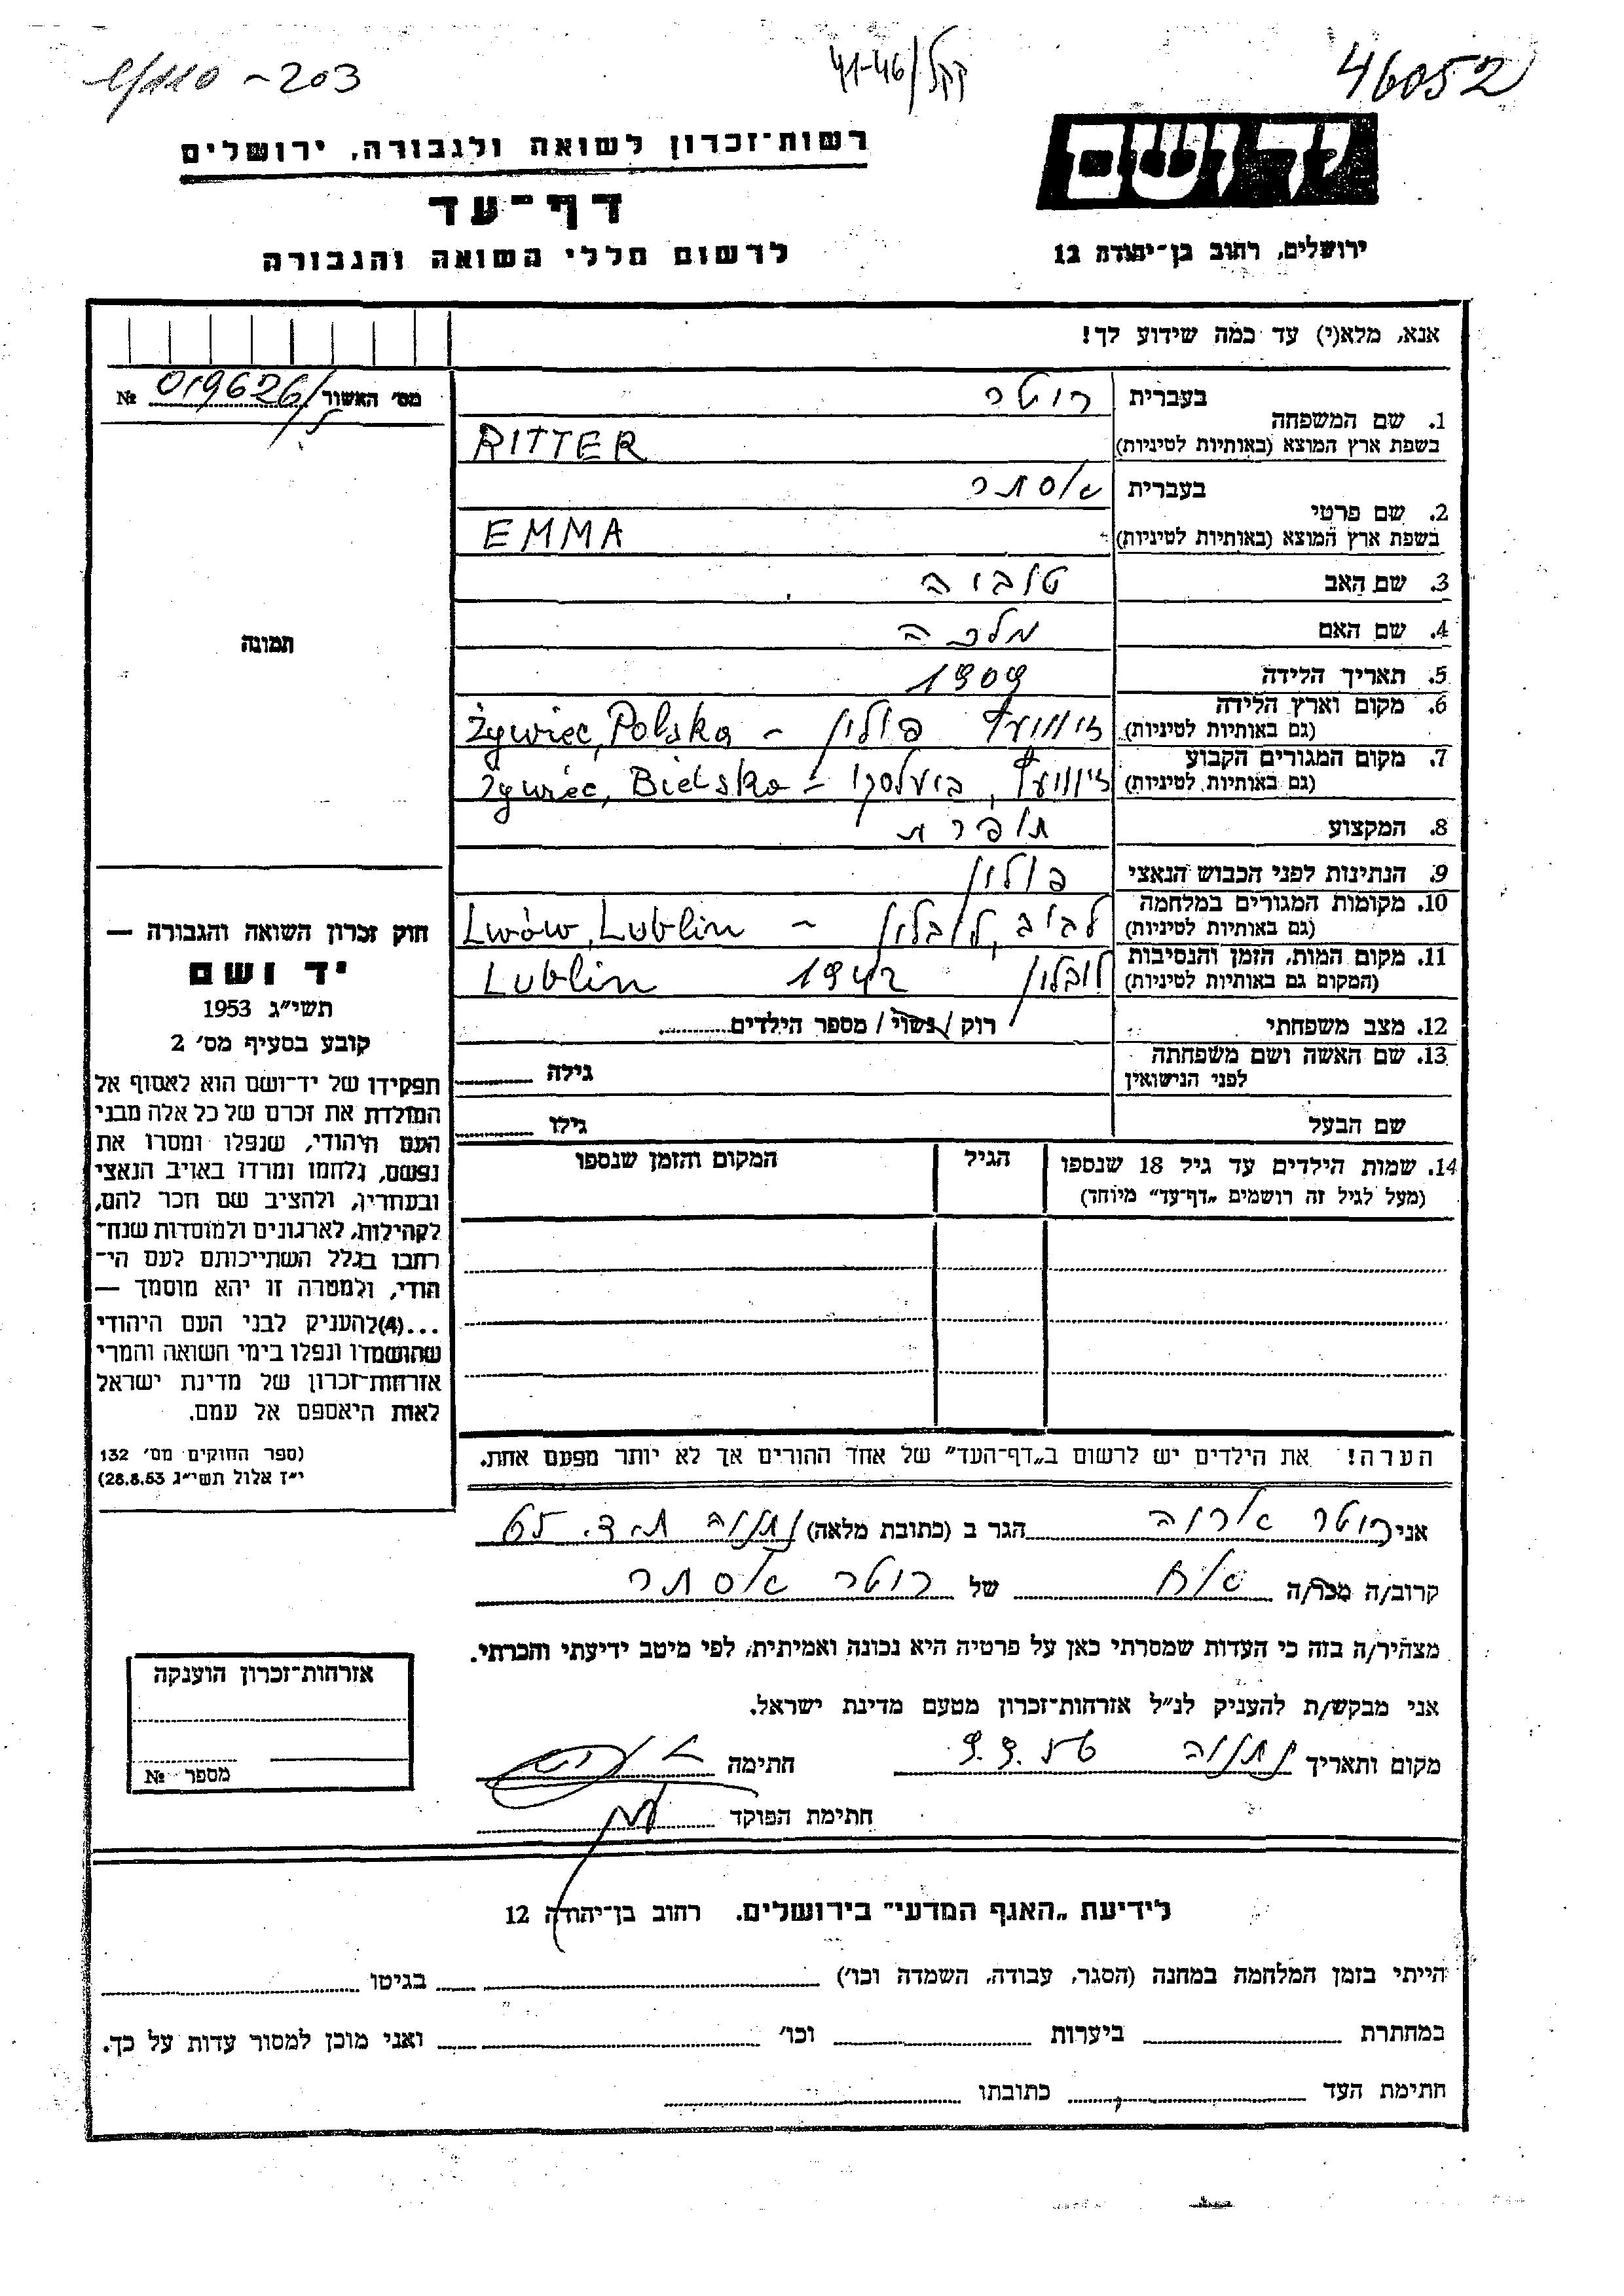 46052
קקל/41-46
ל/110-203
יד ושם
ירושלים, רחוב בן־יהודה 12
רשות־זכרון לשואה ולגבורה, ירושלים
דף־עד
לרשום חללי השואה והגבורה
אנא, מלא(י) עד כמה שידוע לך!
מס' האשור 019626/ל №
1. שם המשפחה
בעברית ריטר
בשפת ארץ המוצא (באותיות לטיניות) RITTER
2. שם פרטי
בעברית אסתר
בשפת ארץ המוצא (באותיות לטיניות) EMMA
3. שם האב טוביה
4. שם האם מלכה
5. תאריך הלידה 1909
6. מקום וארץ הלידה
(גם באותיות לטיניות) זיוועץ פולין - Żywiec, Polska
7. מקום המגורים הקבוע
(גם באותיות לטיניות) זיוועץ, ביעלסקו - Żywiec, Bielsko
8. המקצוע תופרת
9. הנתינות לפני הכבוש הנאצי פולין
10. מקומות המגורים במלחמה
(גם באותיות לטיניות) לביב, לובלין - Lwów, Lublin
11. מקום המות, הזמן והנסיבות
(המקום גם באותיות לטיניות) לובלין 1942 Lublin
12. מצב משפחתי רוק / נשוי / מספר הילדים
13. שם האשה ושם משפחתה
לפני הנישואין גילה
שם הבעל גילו
14. שמות הילדים עד גיל 18 שנספו
(מעל לגיל זה רושמים „דף־עד" מיוחד)
הגיל
המקום והזמן שנספו
תמונה
חוק זכרון השואה והגבורה —
יד ושם
תשי"ג 1953
קובע בסעיף מס' 2
תפקידו של יד־ושם הוא לאסוף אל
המולדת את זכרם של כל אלה מבני
העם היהודי, שנפלו ומסרו את
נפשם, נלחמו ומרדו באויב הנאצי
ובעוזריו, ולהציב שם וזכר להם,
לקהילות, לארגונים ולמוסדות שנח־
רבו בגלל השתייכותם לעם הי־
הודי, ולמטרה זו יהא מוסמך —
...(4)להעניק לבני העם היהודי
שהושמדו ונפלו בימי השואה והמרי
אזרחות־זכרון של מדינת ישראל
לאות היאספם אל עמם.
(ספר החוקים מס' 132
י"ז אלול תשי"ג 28.8.53)
הערה! את הילדים יש לרשום ב„דף־העד" של אחד ההורים אך לא יותר מפעם אחת.
אני ריטר אריה הגר ב (כתובת מלאה) נתניה ת.ד. 65
קרוב/ה מכר/ה אח של ריטר אסתר
מצהיר/ה בזה כי העדות שמסרתי כאן על פרטיה היא נכונה ואמיתית, לפי מיטב ידיעתי והכרתי.
אני מבקש/ת להעניק לנ"ל אזרחות־זכרון מטעם מדינת ישראל.
מקום ותאריך נתניה חתימה
חתימת הפוקד
אזרחות־זכרון הוענקה
מספר №
לידיעת „האגף המדעי" בירושלים. רחוב בן־יהודה 12
הייתי בזמן המלחמה במחנה (הסגר, עבודה, השמדה וכו') בגיטו
במחתרת ביערות וכו' ואני מוכן למסור עדות על כך.
חתימת העד כתובתו